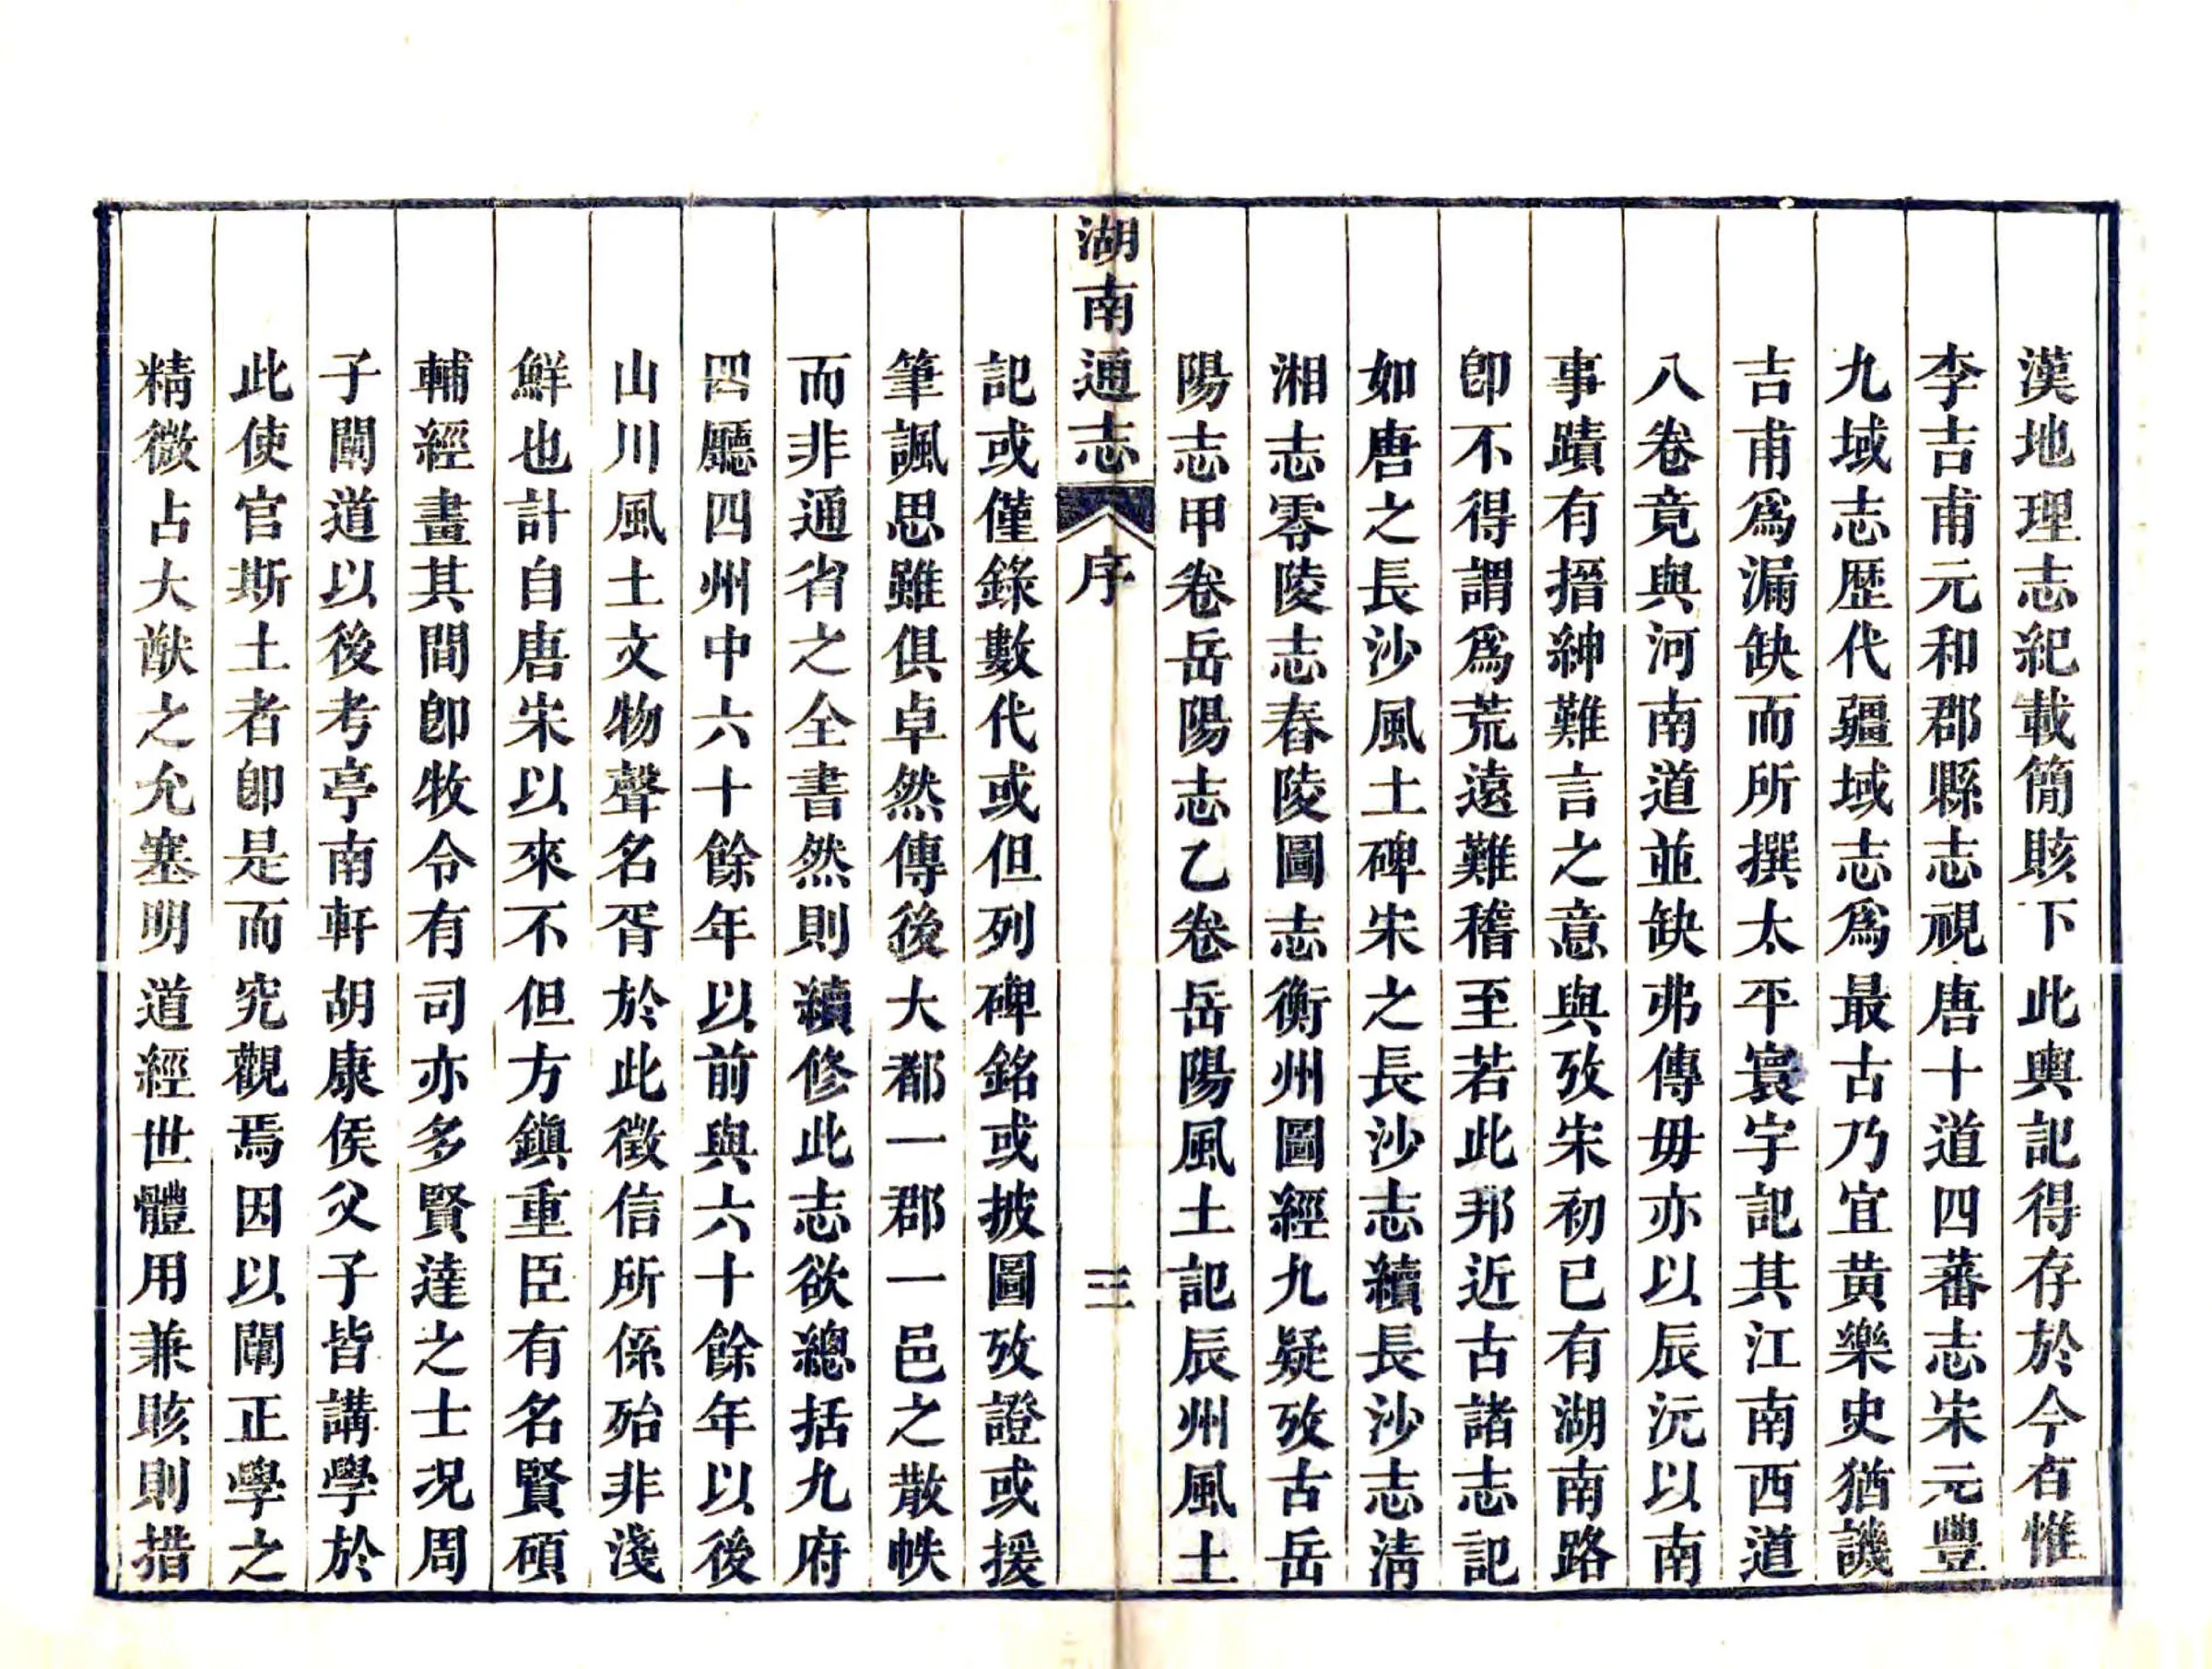 漢地理志紀載簡賅下此輿記得存於今有惟
李吉甫元和郡縣志視唐十道四蕃志宋元豐
九域志歴代疆域志爲最古乃宜黄樂史猶譏
吉甫爲漏缺而所撰太平寰宇記其江南西道
八卷竟與河南道並缺弗傳毋亦以辰沅以南
事蹟有搢紳難言之意與攷宋初已有湖南路
卽不得謂爲荒遠難稽至若此邦近古諸志記
如唐之長沙風土碑宋之長沙志續長沙志清
湘志零陵志舂陵圖志衡州圖經九疑攷古岳
陽志甲卷岳陽志乙卷岳陽風土記辰州風土
湖南通志 序 三
記或僅錄數代或但列碑銘或披圖攷證或援
筆諷思雖俱卓然傳後大都一郡一邑之散帙
而非通省之全書然則續修此志欲總括九府
四廳四州中六十餘年以前與六十餘年以後
山川風土文物聲名胥於此徵信所係殆非淺
鮮也計自唐宋以來不但方鎭重臣有名賢碩
輔經畫其間卽牧令有司亦多賢達之士況周
子闡道以後考亭南軒胡康侯父子皆講學於
此使官斯土者卽是而究觀焉因以闡正學之
精微占大猷之允塞明道經世體用兼賅則措